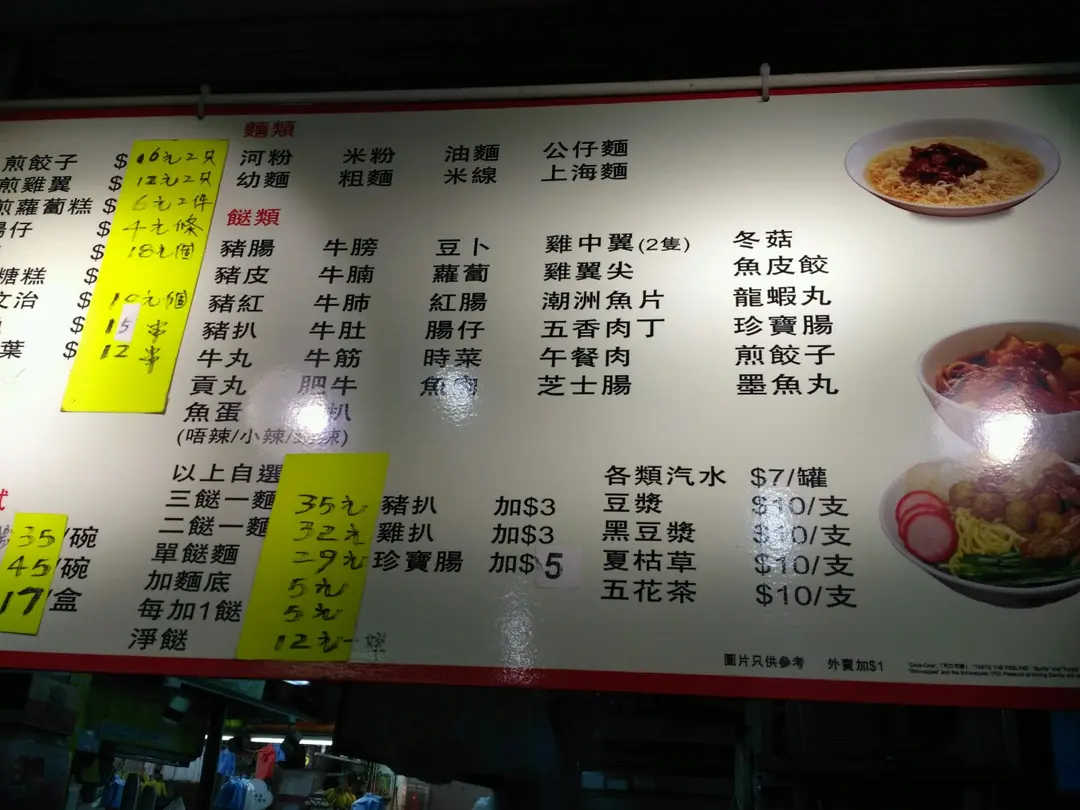 煎餃子 $ 16元2只
煎雞翼 $ 12元2只
煎蘿蔔糕 $ 6元2件
腸仔 $ 4元條
$ 18元個
糖糕 $
文治 $ 10元個
$ 15 串
葉 $ 12 串
麵類
河粉 米粉 油麵 公仔麵
幼麵 粗麵 米線 上海麵
餸類
豬腸 牛膀 豆卜 雞中翼(2隻) 冬菇
豬皮 牛腩 蘿蔔 雞翼尖 魚皮餃
豬紅 牛肺 紅腸 潮洲魚片 龍蝦丸
豬扒 牛肚 腸仔 五香肉丁 珍寶腸
牛丸 牛筋 時菜 午餐肉 煎餃子
貢丸 肥牛 魚肉 芝士腸 墨魚丸
魚蛋 扒
(唔辣/小辣/ 辣)
35/碗
45/碗
17/盒
以上自選
三餸一麵 35元
二餸一麵 32元
單餸麵 29元
加麵底 5元
每加1餸 5元
淨餸 12元一
豬扒 加$3
雞扒 加$3
珍寶腸 加$5
各類汽水 $7/罐
豆漿 $10/支
黑豆漿 $10/支
夏枯草 $10/支
五花茶 $10/支
圖片只供參考 外賣加$1